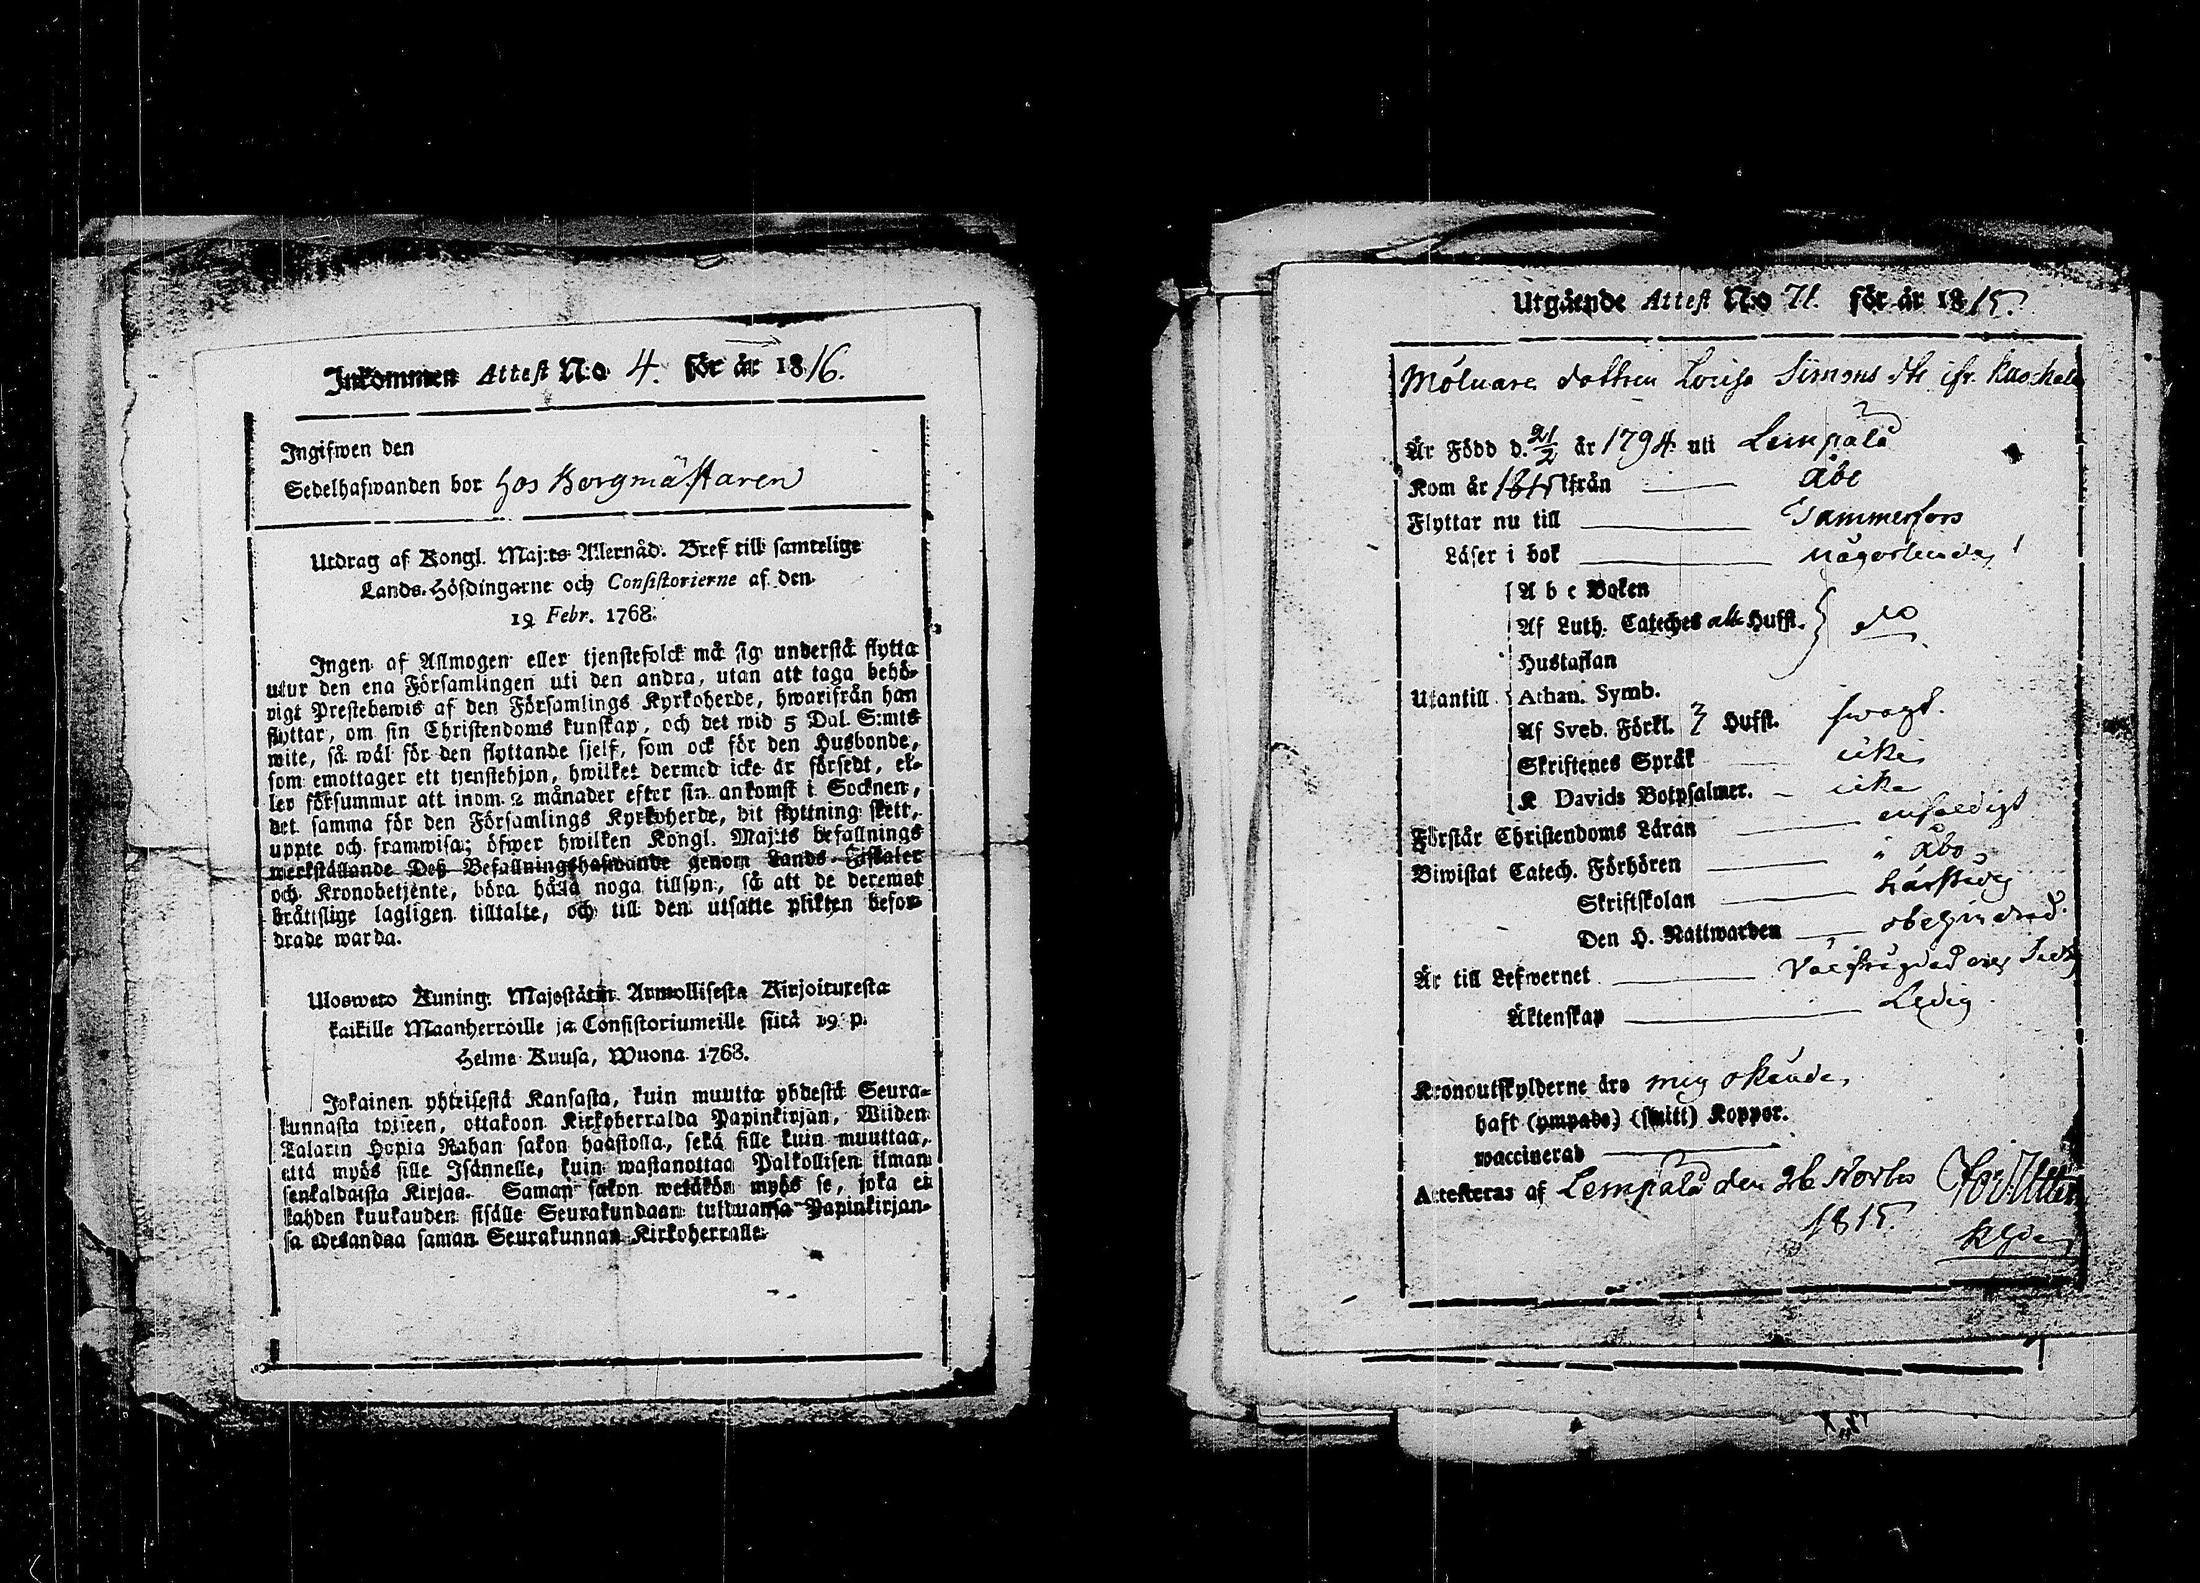 Inkommen Attest N:o 4. för år 1816.
Ingifwen den
Sedelhafwanden bor hos Borgmästaren
Utdrag af Kongl. Maj:ts Allernåd. Bref till samtelige
Lands-Höfdingarne och Consistorierne af den
19 Febr. 1768.
Ingen af Allmogen eller tjenstefolck må sig understå flytta
utur den ena Församlingen uti den andra, utan att taga behö-
rigt Prestebewis af den Församlings Kyrkoherde, hwarifrån han
flyttar, om sin Christendoms kunskap, och det wid 5 Dal. S:mts
wite, så wäl för den flyttande sielf, som ock för den Husbonde,
som emottager ett tjenstehjon, hwilket dermed icke är försedt, el-
ler försummar att inom 2 månader efter sin ankomst i Socknen,
det samma för den Församlings Kyrkoherde, dit flyttning skett,
uppte och framwisa; öfwer hwilken Kongl. Maj:ts befallnings
werkställande Deß Befallningshafwande genom Lands-Fiskaler
och Kronobetjente, böra hålla noga tillsyn, så att de deremot
bråttslige lagligen tilltalte, och till den utsatte plikten befor-
drade warda.
Uloswето Kuning. Majestätin Armollisesta Kirjoituresta
kaikille Maanherroille ja Consistoriumeille siitä 19 p.
Helme Kuusa, Wuona 1768.
Jokainen yhteisestä Kansasta, kuin muutta yhdestä Seura-
kunnasta toiseen, ottakoon Kirkoherralda Papinkirjan, Wiiden
Talarin Hopia Rahan sakon haastolla, sekä sille kuin muuttaa,
että myös sille Isännelle, kuin wastanottaa Palkollisen ilman
senkaldaista Kirjaa. Saman sakon wetäkön myös se, joka ei
kahden kuukauden sisälle Seurakundaan tulduansa Papinkirjan-
sa edesandaa saman Seurakunnan Kirkoherralle.
Utgående Attest N:o 71. för år 1815.
dottren Lovisa Simons dtr ifr.
Är Född d. 21/2 år 1794 uti Lempälä
Kom år 1815 ifrån Åbo
Flyttar nu till Tammerfors
Läser i bok någorlunda
A b c Boken
Af Luth. Cateches alla Hufst. } do
Hustaflan
Utantill Athan. Symb.
Af Sveb. Förkl. 3 Hufst. swagt.
Skriftenes Språk icke
K Davids Botpsalmer. icke
Förstår Christendoms Läran enfaldigt
Biwistat Catech. Förhören i Åbo
Skriftskolan
Den H. Nattwarden obehindrad.
Är till Lefwernet
Äktenskap Ledig
Kronoutskylderne äro mig okände
haft (ympade) (smitt) Koppor.
waccinerad
Attesteras af Lempälä den 26 Novbr
1815.